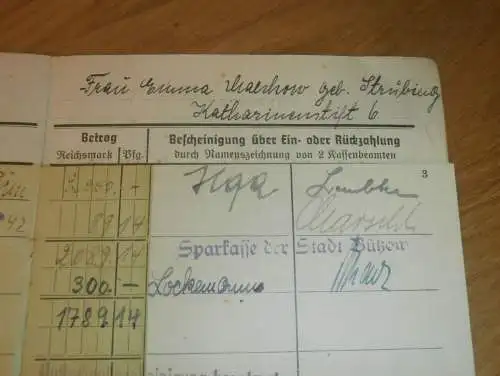 Frau Emma Malchow geb. Strübing
Katharinenstift 6
Betrag
Reichsmark Pfg.
Bescheinigung über Ein- oder Rückzahlung
durch Namenszeichnung von 2 Kassenbeamten
3
2 000. -
89 14
42
2089. 14
Sparkasse der Stadt Bützow
300. -
Lockemann
1789 14